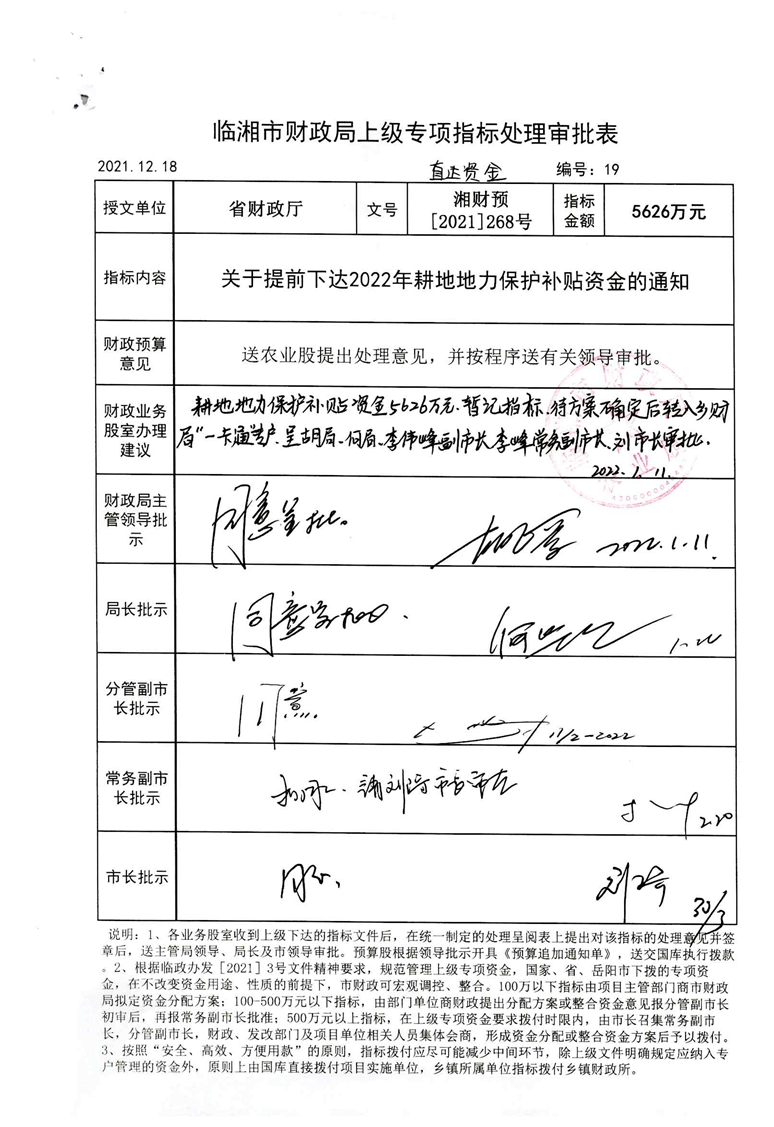 临湘市财政局上级专项指标处理审批表
2021.12.18 直达资金 编号：19
授文单位 省财政厅 文号 湘财预[2021]268号 指标金额 5626万元
指标内容 关于提前下达2022年耕地地力保护补贴资金的通知
财政预算意见 送农业股提出处理意见，并按程序送有关领导审批。
财政业务股室办理建议
耕地地力保护补贴资金5626万元.暂记指标.待方案确定后转入乡财
局"一卡通"专户.呈胡局、何局、李伟峰副市长李峰常务副市长、刘市长审批.
2022.1.11.
财政局主管领导批示 同意呈批。 2022.1.11.
局长批示 同意
分管副市长批示 同意. 11/2-2022
常务副市长批示 2.20
市长批示 同意. 30/3
说明：1、各业务股室收到上级下达的指标文件后，在统一制定的处理呈阅表上提出对该指标的处理意见并签
章后，送主管局领导、局长及市领导审批。预算股根据领导批示开具《预算追加通知单》，送交国库执行拨款
。2、根据临政办发［2021］3号文件精神要求，规范管理上级专项资金，国家、省、岳阳市下拨的专项资
金，在不改变资金用途、性质的前提下，市财政可宏观调控、整合。100万以下指标由项目主管部门商市财政
局拟定资金分配方案；100-500万元以下指标，由部门单位商财政提出分配方案或整合资金意见报分管副市长
初审后，再报常务副市长批准；500万元以上指标，在上级专项资金要求拨付时限内，由市长召集常务副市
长，分管副市长，财政、发改部门及项目单位相关人员集体会商，形成资金分配或整合资金方案后予以拨付。
3、按照“安全、高效、方便用款”的原则，指标拨付应尽可能减少中间环节，除上级文件明确规定应纳入专
户管理的资金外，原则上由国库直接拨付项目实施单位，乡镇所属单位指标拨付乡镇财政所。